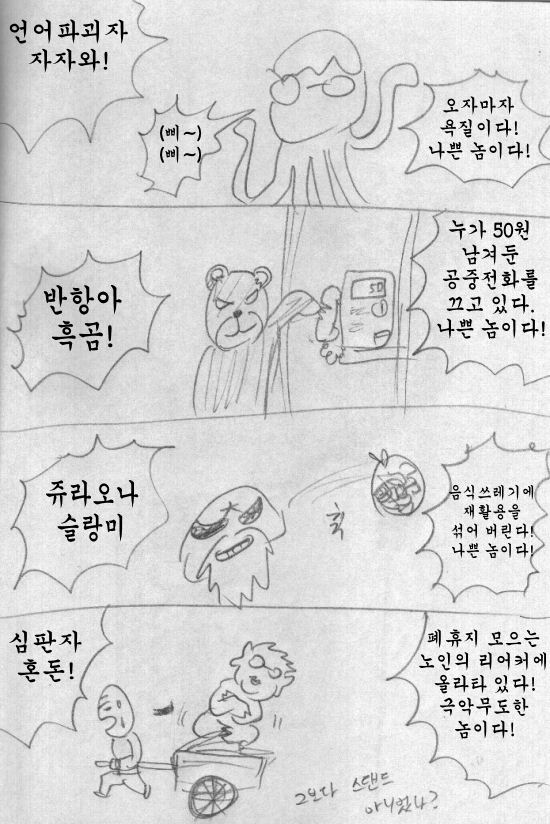 언어파괴자
자자와!
(삐~)
(삐~)
오자마자
욕질이다!
나쁜 놈이다!
반항아
흑곰!
누가 50원
남겨둔
공중전화를
끄고 있다.
나쁜 놈이다!
50
쥬라오나
슬랑미
휙
음식쓰레기에
재활용을
섞어 버린다!
나쁜 놈이다!
심판자
혼돈!
폐휴지 모으는
노인의 리어커에
올라타 있다!
극악무도한
놈이다!
그보다 스탠드
아니었나?